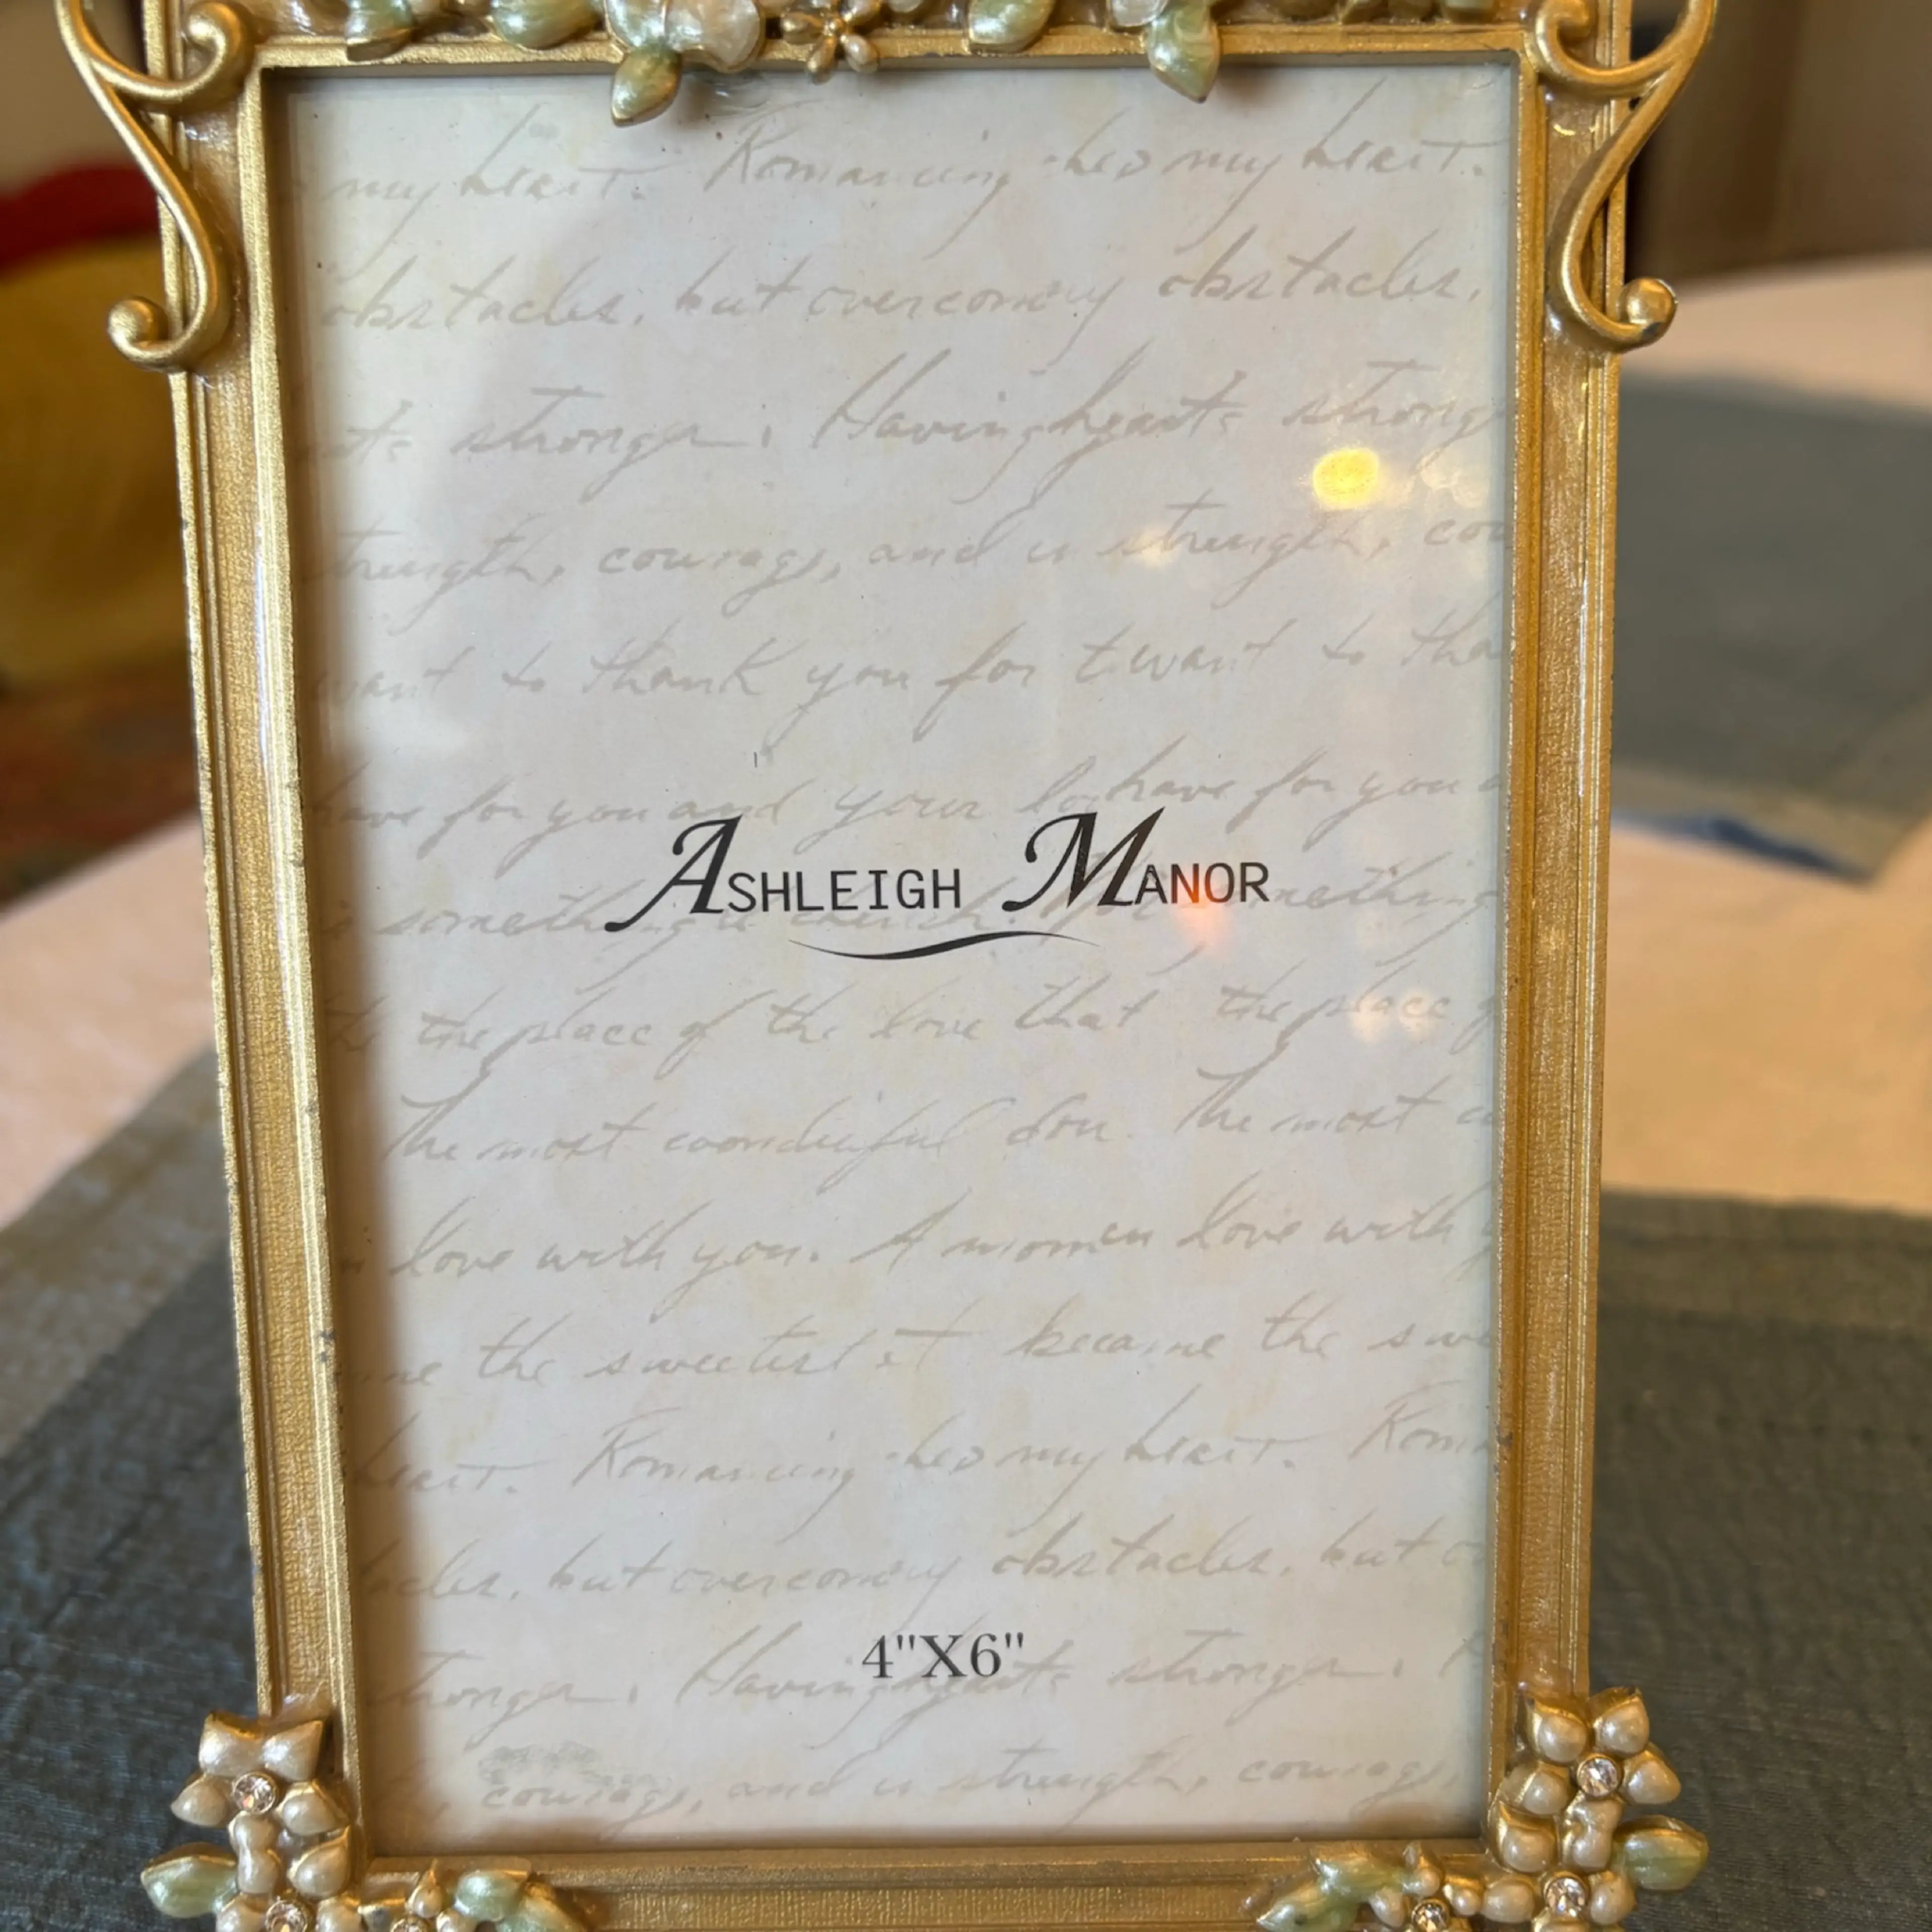 my heart. Romancing has my heart.
obstacles, but overcoming obstacles,
stronger. Having hearts strong
strength, courage, and in strength, cou
want to thank you for t want to tha
have for you and your lo have for you
ASHLEIGH MANOR
something much. something
the place of the love that the place
The most wonderful son. The most
love with you. A moment love with
the sweetest it became the swe
heart. Romancing has my heart. Roma
acles, but overcoming obstacles, but
4"X6"
stronger. Having hearts stronger.
courage, and in strength, courage,